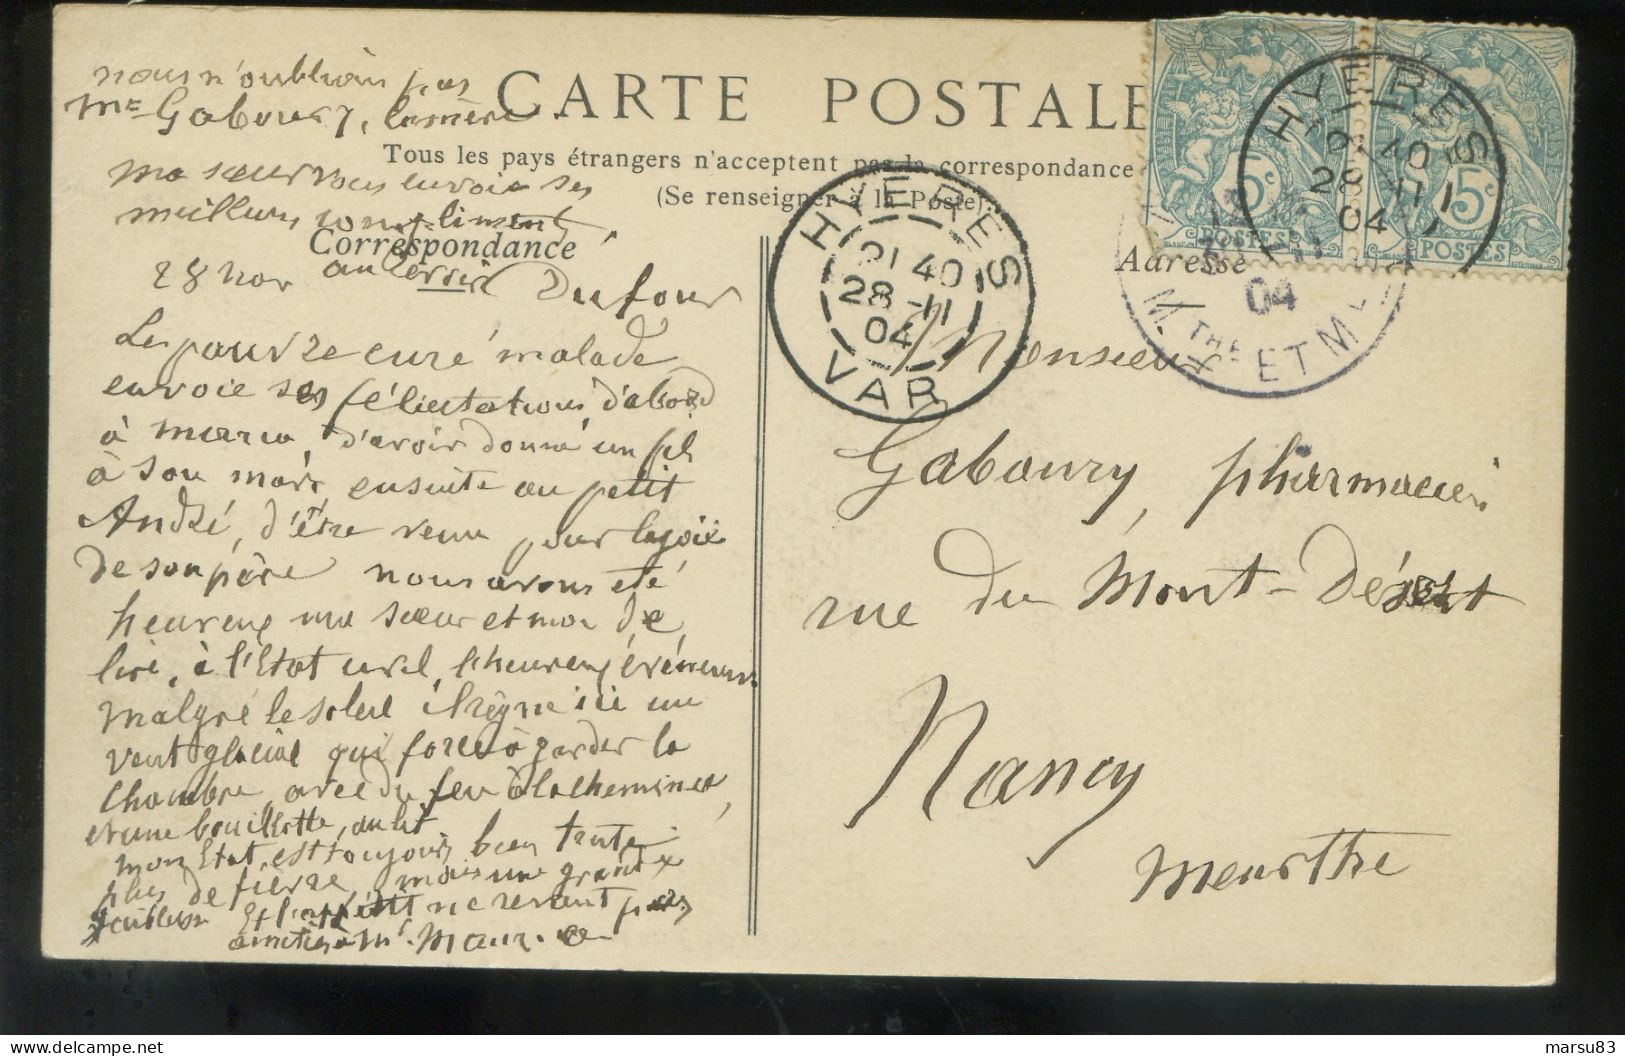 nous n'oublions pas
Me Gaboury, la mère.
CARTE POSTALE
Tous les pays étrangers n'acceptent pas la correspondance
(Se renseigner à la Poste).
ma sœur vous envoie ses
meilleurs compliments.
Correspondance
Adresse
28 nov au revoir Dufour
Le pauvre curé malade
envoie ses félicitations, d'abord
à maria, d'avoir donné un fils
à son mari, ensuite au petit
André, d'être venu pour la joie
de son père nous avons été
heureux ma sœur et moi de
lire, à l'Etat civil, l'heureux événement
malgré le soleil il règne ici un
vent glacial qui force à garder la
chambre avec du feu à la cheminée,
et une bouillotte, au lit
mon Etat est toujours bien
plus de fièvre, mais une grande
faiblesse Et l'appétit ne revient pas
amitiés à Mr.
HYERES
21 40
28 -11
04
VAR
HYERES
40
28 -11
04
04
MTHE ET M
5c
POSTES
5c
POSTES
Monsieur
Gaboury, pharmacien
rue du Mont-Désert
Nancy
Meurthe
marsu83